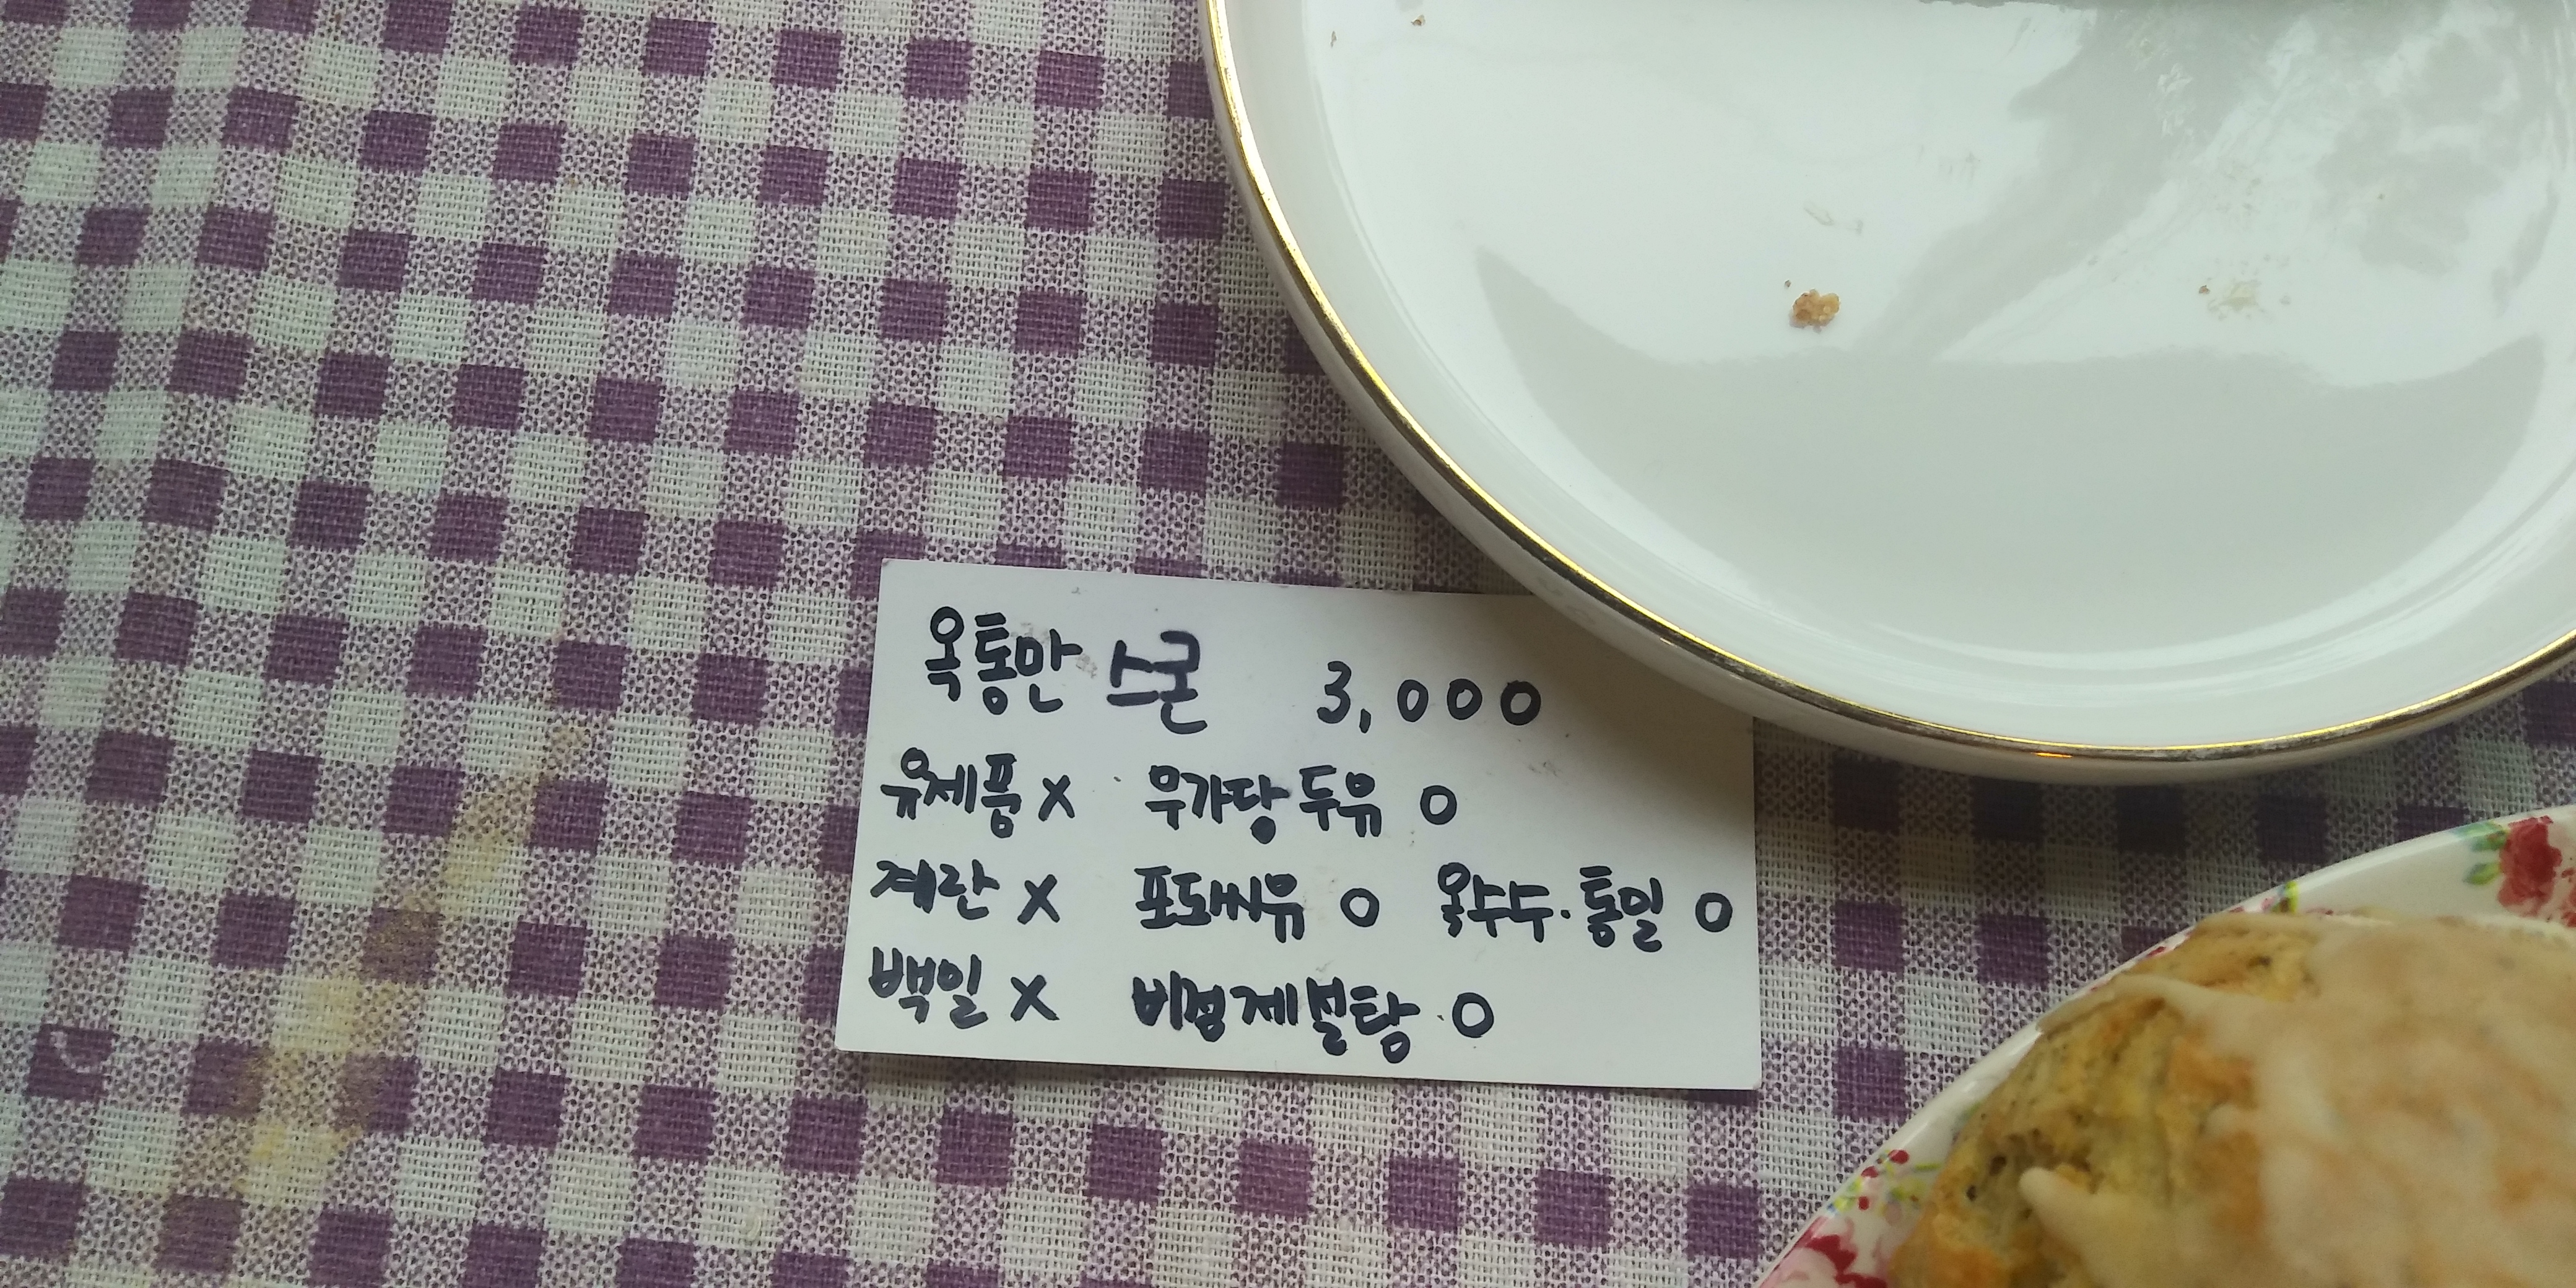 옥통만 스콘 3,000
유제품 X 무가당 두유 O
계란 X 포도씨유 O 옥수수·통밀 O
백밀 X 비정제 설탕 O